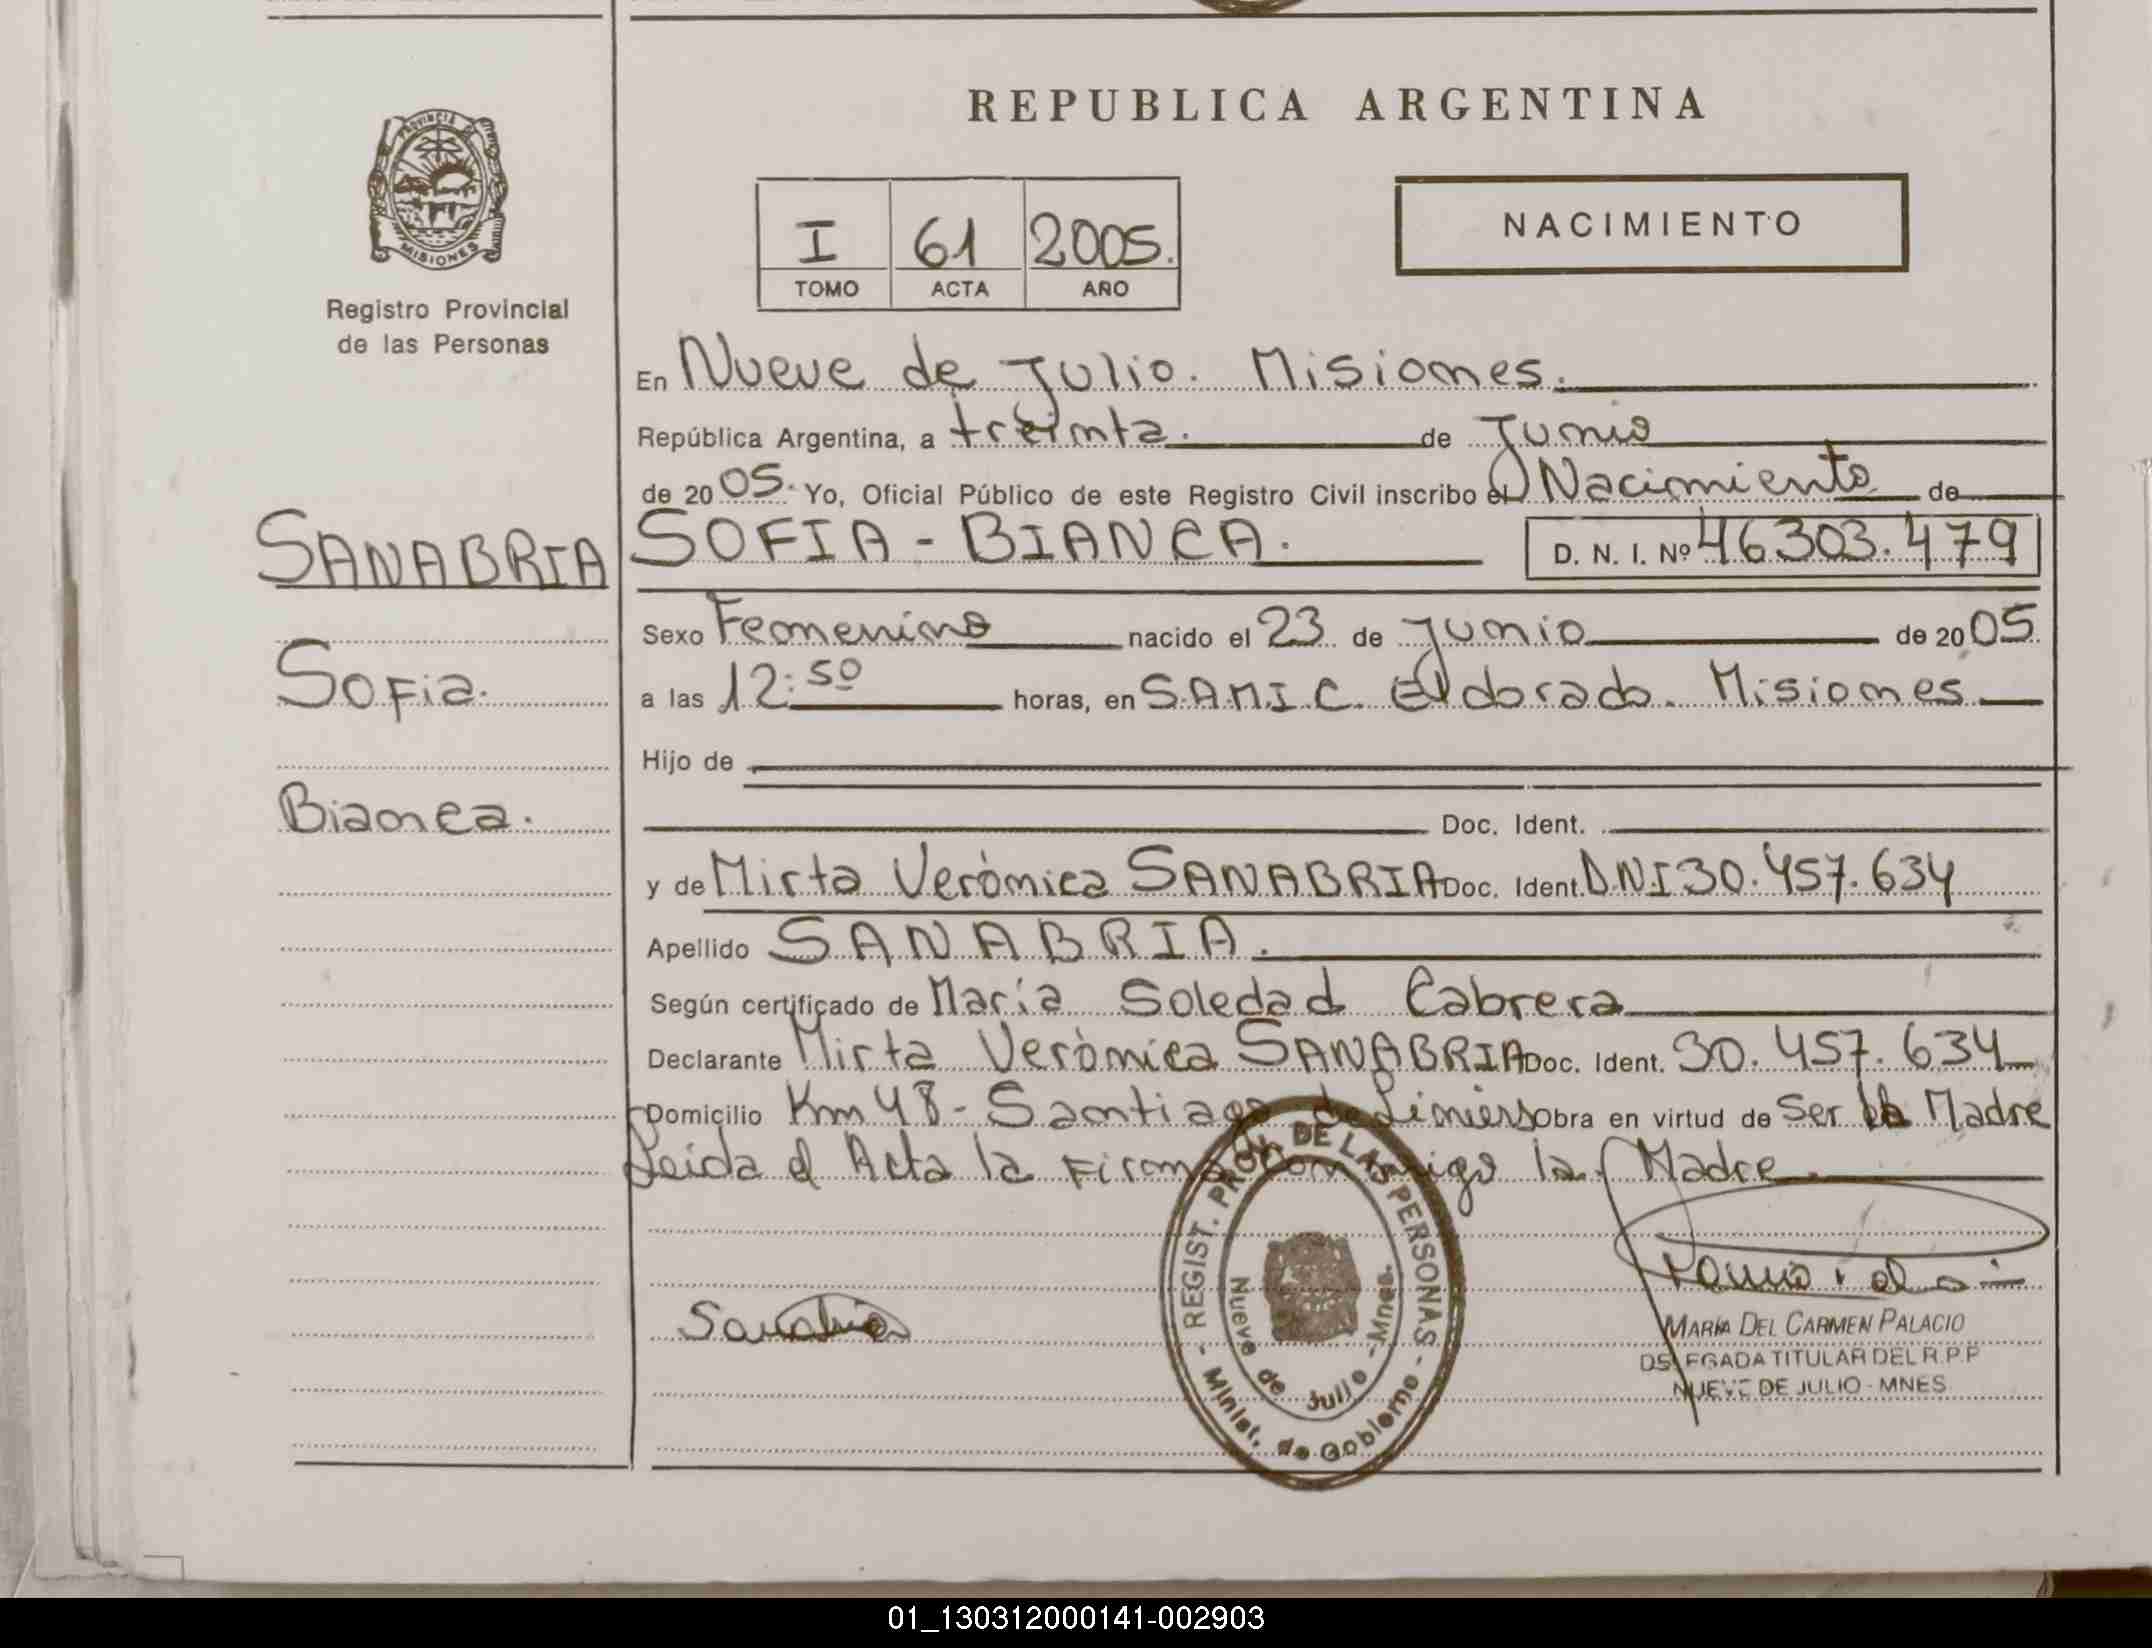 REPUBLICA ARGENTINA
PROVINCIA DE MISIONES
Registro Provincial
de las Personas
I 61 2005.
TOMO ACTA AÑO
NACIMIENTO
En Nueve de Julio. Misiones.
República Argentina, a treinta. de Junio
de 2005. Yo, Oficial Público de este Registro Civil inscribo el Nacimiento de
SANABRIA SOFIA - BIANCA. D. N. I. Nº 46303.479
Sexo Femenino nacido el 23 de Junio de 2005
Sofia.
a las 12:50 horas, en S.A.M.I.C. Eldorado. Misiones
Hijo de
Bianca.
Doc. Ident.
y de Mirta Verònica SANABRIA Doc. Ident. DNI 30.457.634
Apellido SANABRIA.
Según certificado de María Soledad Cabrera
Declarante Mirta Verònica SANABRIA Doc. Ident. 30.457.634
Domicilio Km 48 - Santiago de Liniers Obra en virtud de Ser la Madre
Leida el Acta la Firma conmigo la Madre
REGIST. PROV. DE LAS PERSONAS
Nueve de Julio - Mnes.
- Minist. de Gobierno -
Sanabria
MARIA DEL CARMEN PALACIO
DELEGADA TITULAR DEL R.P.P
NUEVE DE JULIO - MNES
01_130312000141-002903